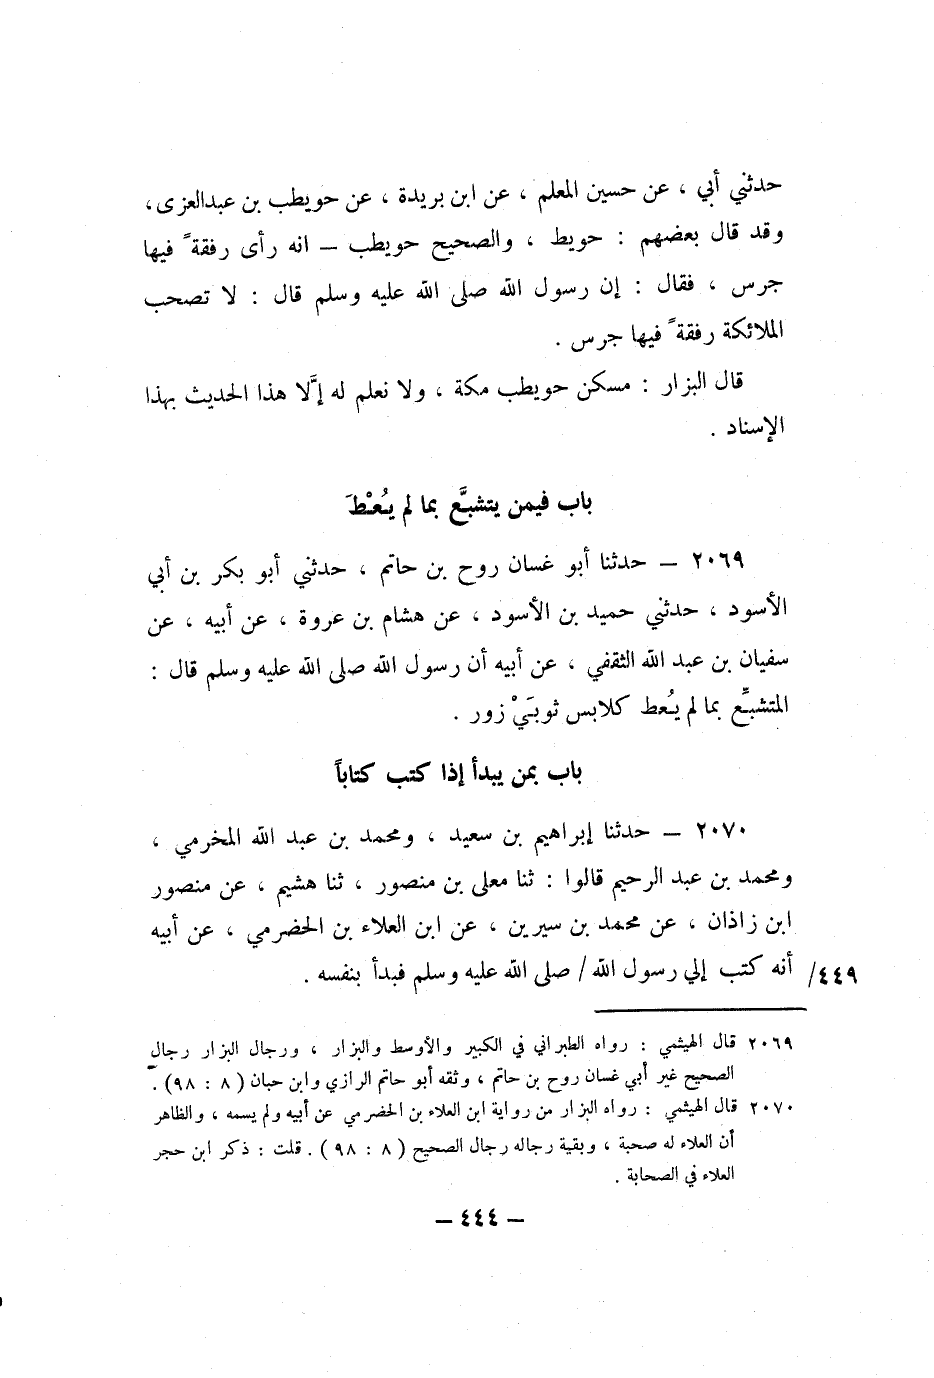 حدثني أبي ، عن حسين المعلم ، عن ابن بريدة ، عن حويطب بن عبدالعزى ،
وقد قال بعضهم : حويط ، والصحيح حويطب – انه رأى رفقةً فيها
جرس ، فقال : إن رسول الله صلى الله عليه وسلم قال : لا تصحب
الملائكة رفقةً فيها جرس .
قال البزار : مسكن حويطب مكة ، ولا نعلم له إلَّا هذا الحديث بهذا
الإسناد .
باب فيمن يتشبَّع بما لم يُعْطَ
٢٠٦٩ – حدثنا أبو غسان روح بن حاتم ، حدثني أبو بكر بن أبي
الأسود ، حدثني حميد بن الأسود ، عن هشام بن عروة ، عن أبيه ، عن
سفيان بن عبد الله الثقفي ، عن أبيه أن رسول الله صلى الله عليه وسلم قال :
المتشبِّع بما لم يُعط كلابس ثوبَيْ زور .
باب بمن يبدأ إذا كتب كتاباً
٢٠٧٠ – حدثنا إبراهيم بن سعيد ، ومحمد بن عبد الله المخرمي ،
ومحمد بن عبد الرحيم قالوا : ثنا معلى بن منصور ، ثنا هشيم ، عن منصور
ابن زاذان ، عن محمد بن سيرين ، عن ابن العلاء بن الحضرمي ، عن أبيه
أنه كتب إلي رسول الله / صلى الله عليه وسلم فبدأ بنفسه . /٤٤٩
٢٠٦٩ قال الهيثمي : رواه الطبراني في الكبير والأوسط والبزار ، ورجال البزار رجال
الصحيح غير أبي غسان روح بن حاتم ، وثقه أبو حاتم الرازي وابن حبان (٨ : ٩٨) .
٢٠٧٠ قال الهيثمي : رواه البزار من رواية ابن العلاء بن الحضرمي عن أبيه ولم يسمه ، والظاهر
أن العلاء له صحبة ، وبقية رجاله رجال الصحيح (٨ : ٩٨) . قلت : ذكر ابن حجر
العلاء في الصحابة .
– ٤٤٤ –